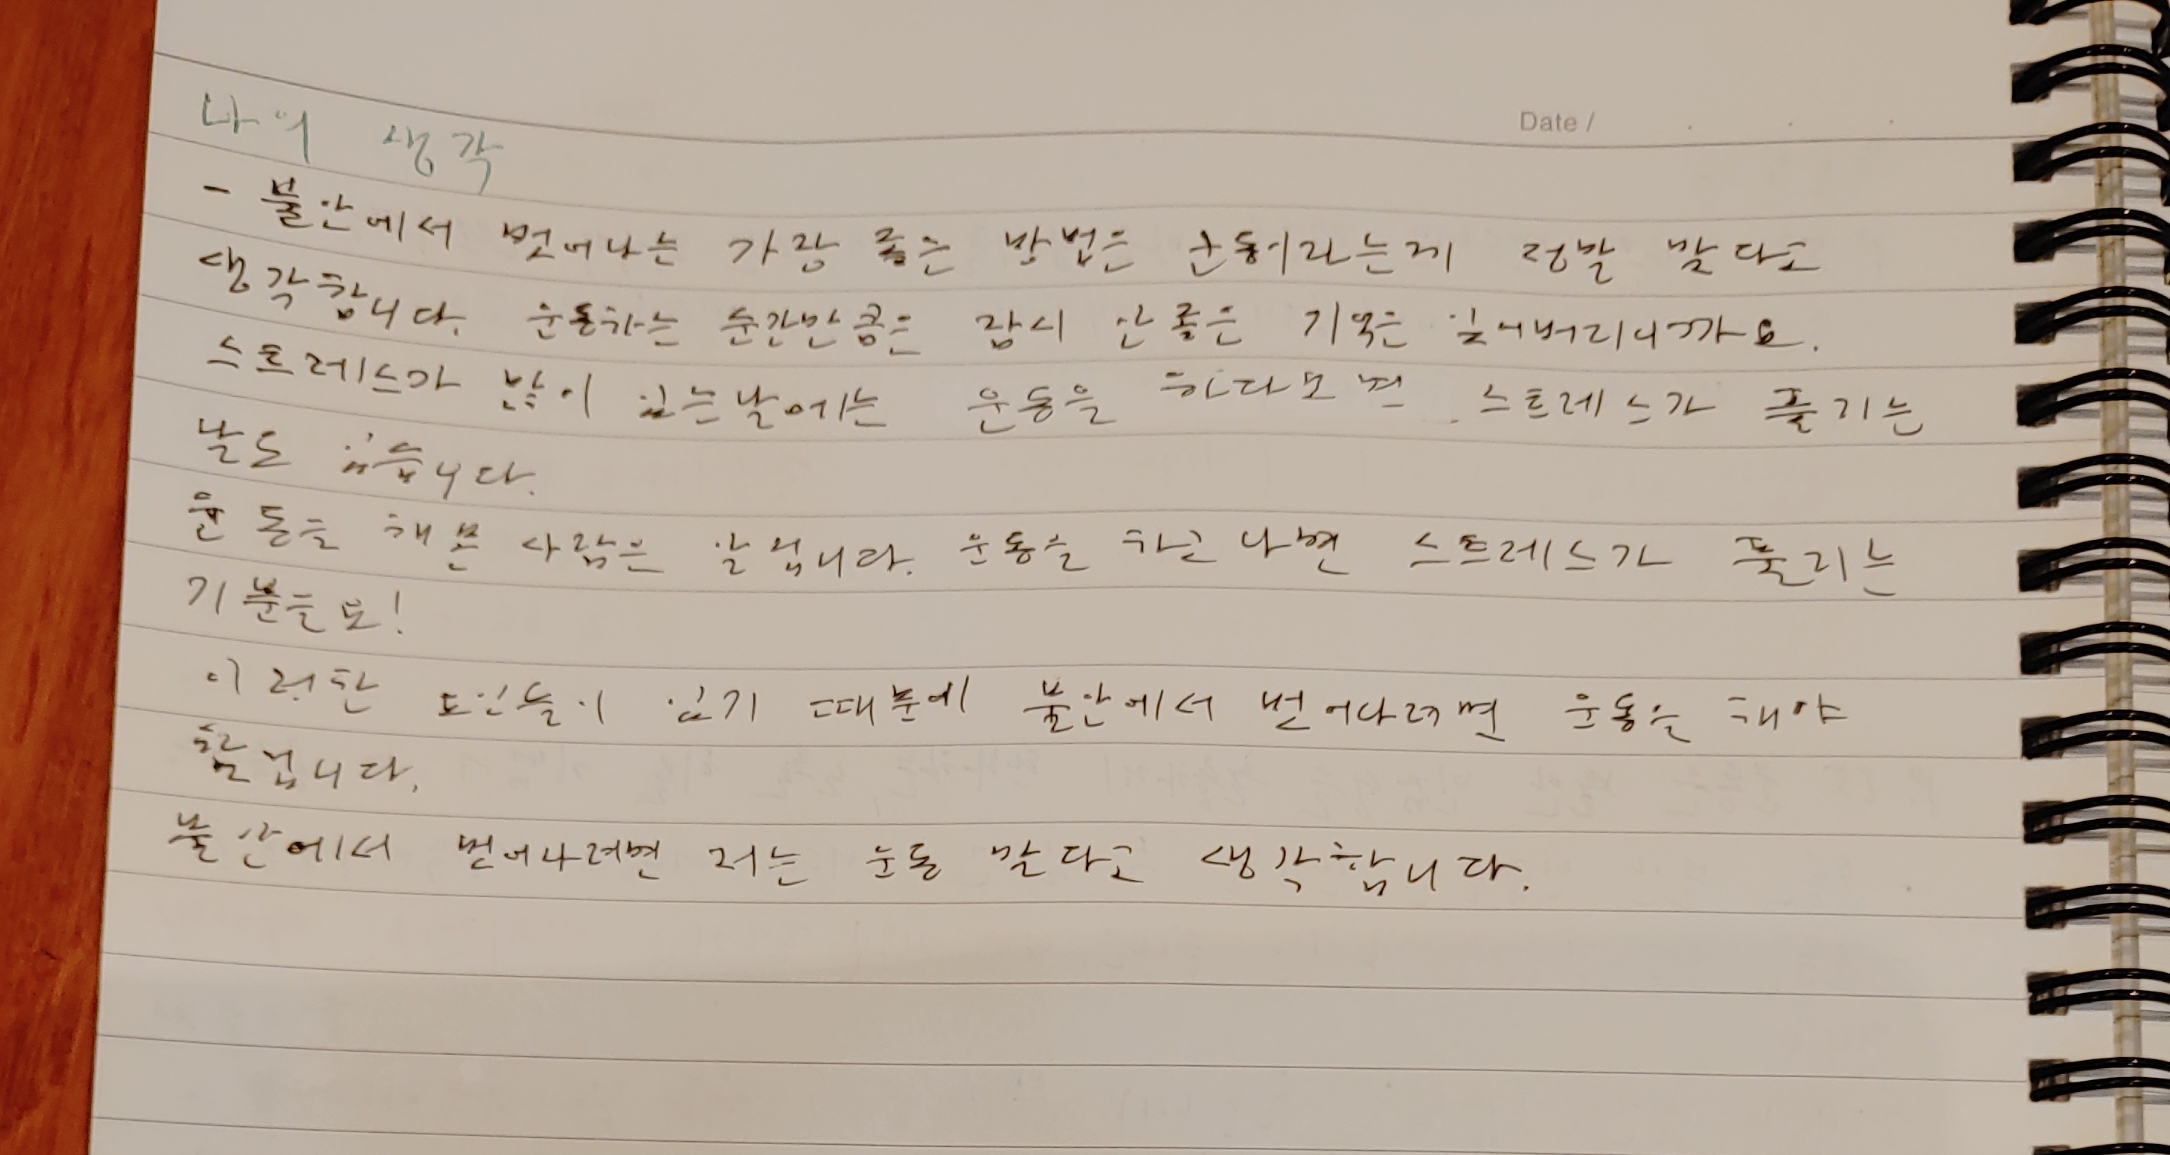 Date /
나의 생각
- 불안에서 벗어나는 가장 좋은 방법은 운동이라는게 정말 맞다고
생각합니다. 운동하는 순간만큼은 잠시 안좋은 기억은 잊어버리니까요.
스트레스가 많이 있는날에는 운동을 하다보면 스트레스가 풀리는
날도 있습니다.
운동을 해본 사람은 알겁니다. 운동을 하고나면 스트레스가 풀리는
기분을요!
이러한 요인들이 있기 때문에 불안에서 벗어나려면 운동을 해야
할겁니다.
불안에서 벗어나려면 저는 운동 맞다고 생각합니다.